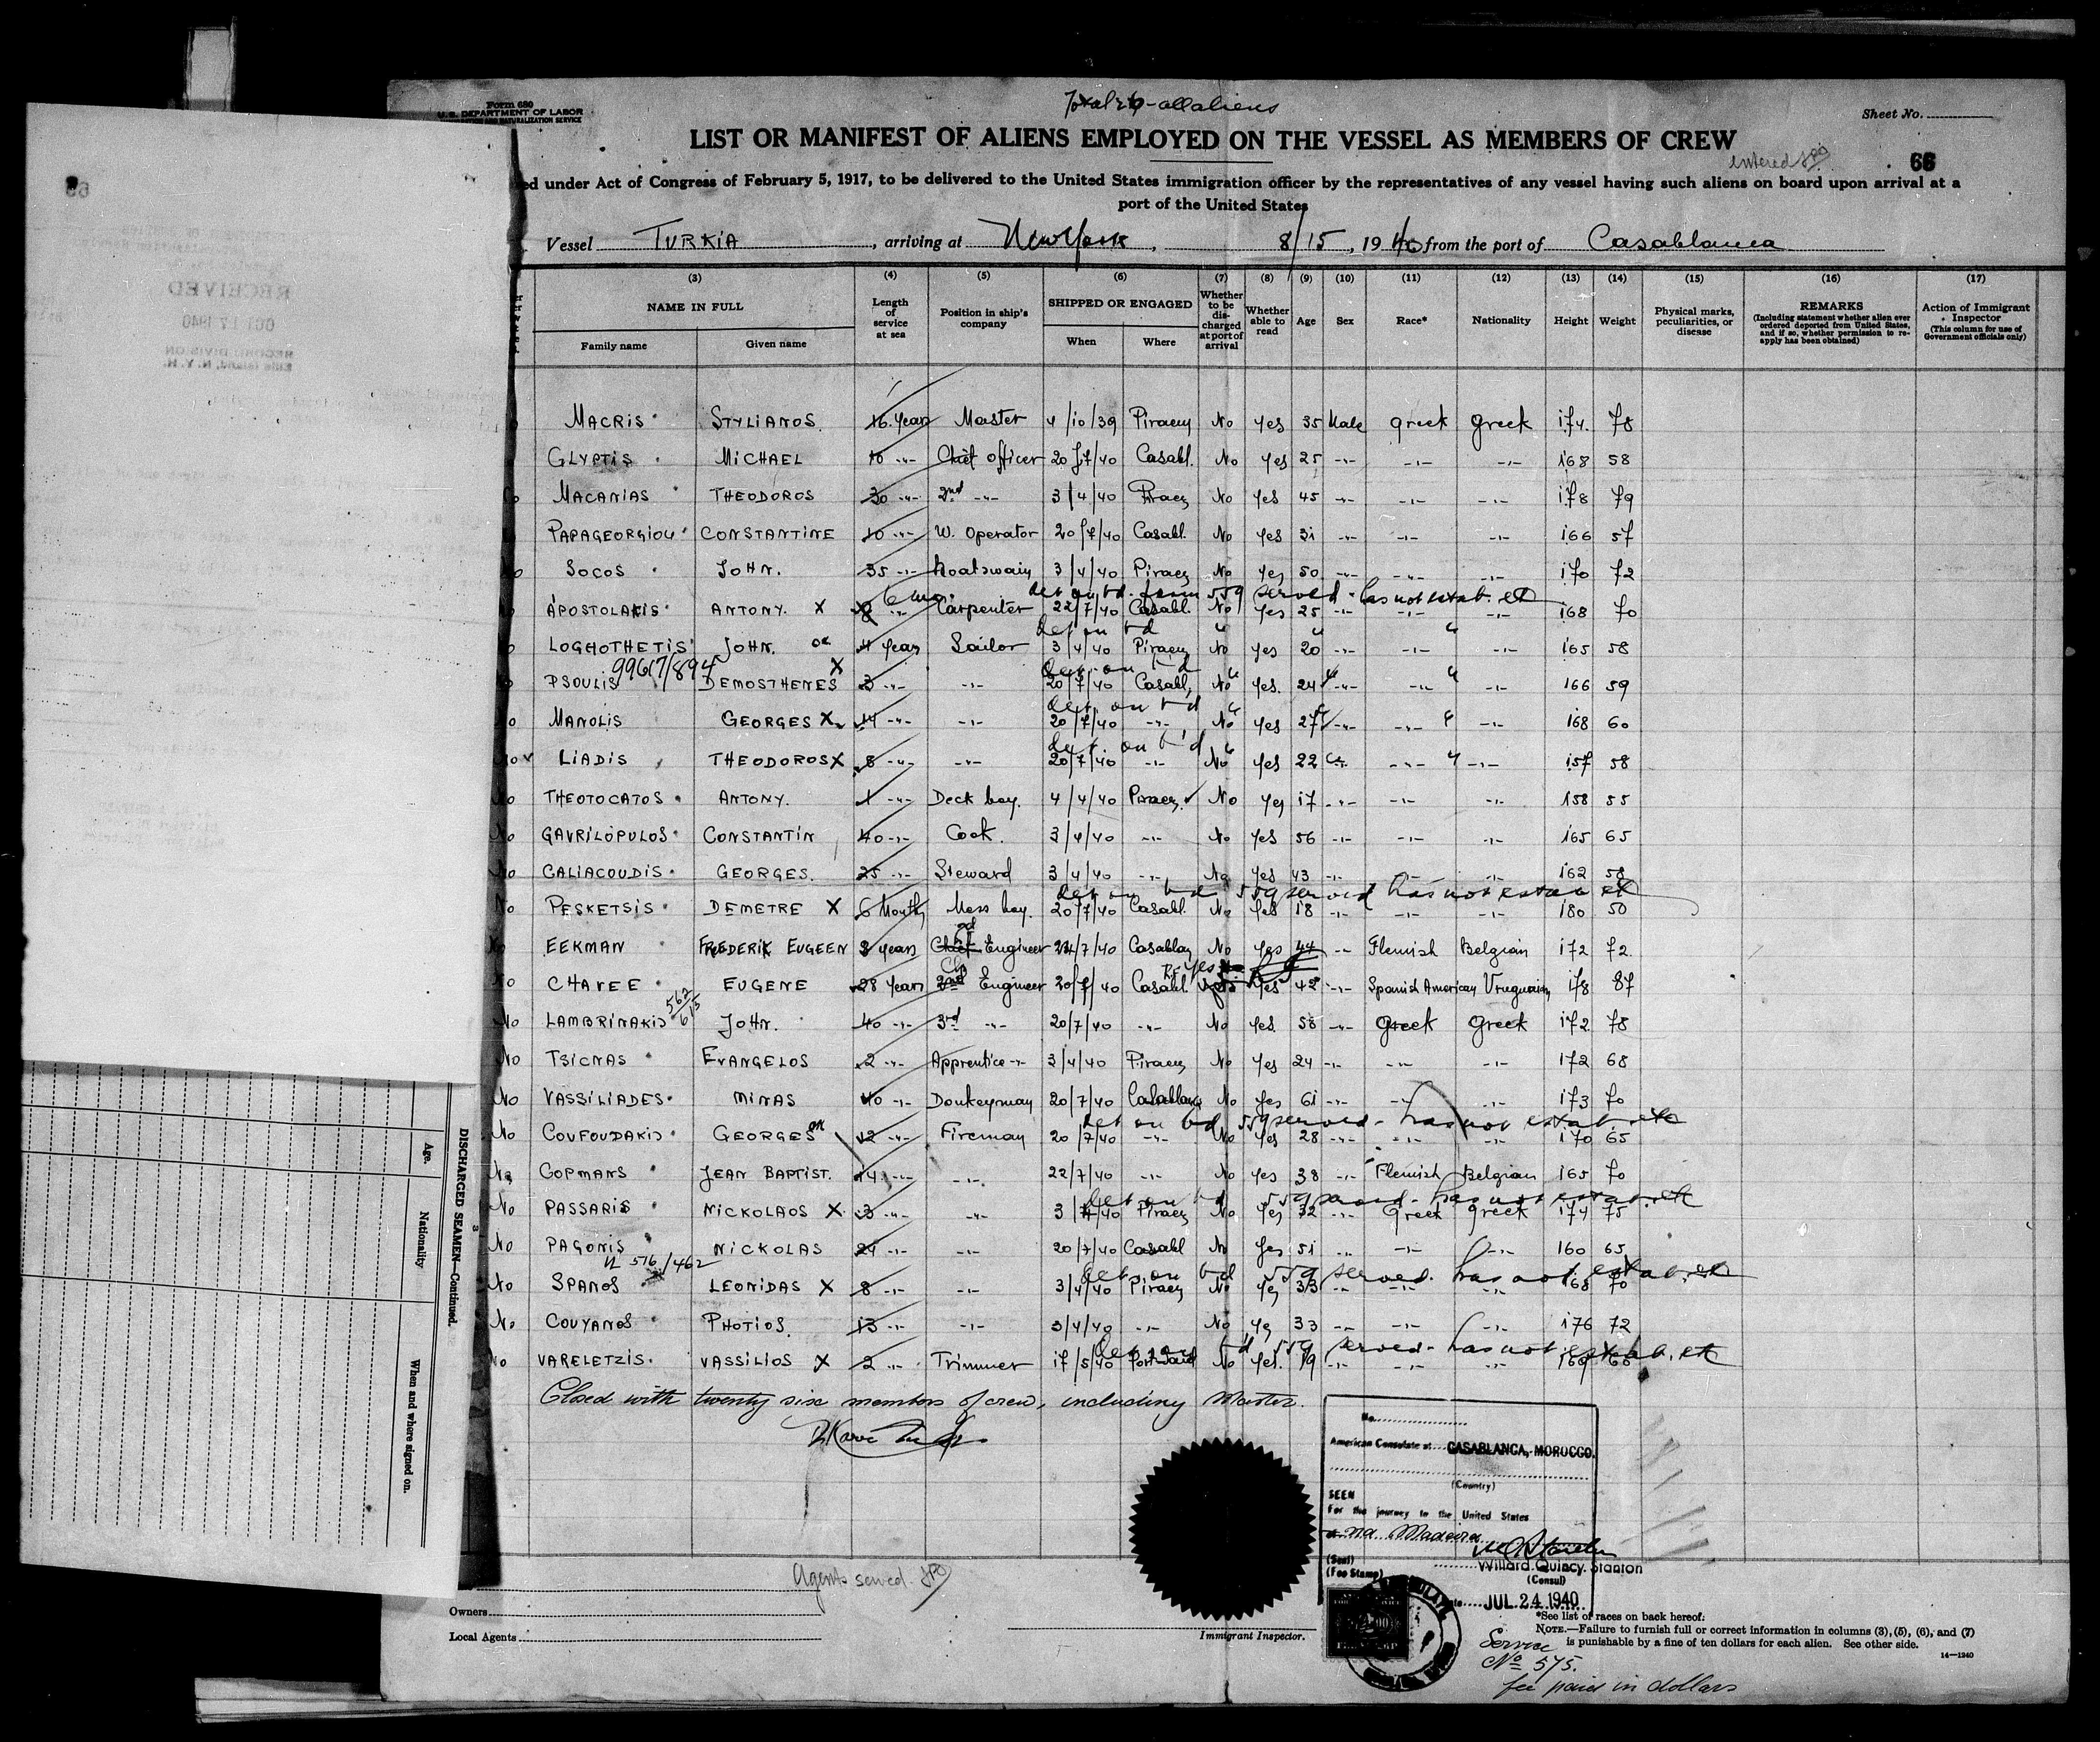 Form 680
U.S. DEPARTMENT OF LABOR
Total 26-all aliens
Sheet No.
LIST OR MANIFEST OF ALIENS EMPLOYED ON THE VESSEL AS MEMBERS OF CREW
entered
66
ed under Act of Congress of February 5, 1917, to be delivered to the United States immigration officer by the representatives of any vessel having such aliens on board upon arrival at a
port of the United States
Vessel TURKIA, arriving at New York, 8/15, 1940 from the port of Casablanca
(3) (4) (5) (6) (7) (8) (9) (10) (11) (12) (13) (14) (15) (16) (17)
NAME IN FULL Family name Given name
Length of service at sea
Position in ship's company
SHIPPED OR ENGAGED When Where
Whether to be discharged at port of arrival
Whether able to read
Age Sex Race* Nationality Height Weight
Physical marks, peculiarities, or disease
REMARKS
(Including statement whether alien ever ordered deported from United States, and if so, whether permission to re-apply has been obtained)
Action of Immigrant Inspector
(This column for use of Government officials only)
MACRIS STYLIANOS. 16 Years Master 4/10/39 Piraeus No Yes 35 Male greek greek 174. 78
GLYPTIS MICHAEL 10 -"- Chief officer 20/7/40 Casabl. No Yes 25 -"- -"- -"- 168 58
MACANIAS THEODOROS 30 -"- 2nd -"- 3/4/40 Piraeus No Yes 45 -"- -"- -"- 178 79
PAPAGEORGIOU CONSTANTINE 10 -"- W. Operator 20/7/40 Casabl. No Yes 31 -"- -"- -"- 166 57
SOCOS JOHN. 35 -"- Boatswain 3/4/40 Piraeus No Yes 50 -"- -"- -"- 170 72
6 mo. det on bd. from 559 served - has not estab. etc
APOSTOLAKIS ANTONY. X -"- Carpenter 22/7/40 Casabl. No Yes 25 -"- -"- -"- 168 70
det on bd " " "
LOGHOTHETIS JOHN. ok 4 Years Sailor 3/4/40 Piraeus No Yes 20 -"- -"- -"- 165 58
99617/894 X det on bd " " "
PSOULIS DEMOSTHENES 3 -"- -"- 20/7/40 Casabl, No Yes. 24 -"- -"- -"- 166 59
det. on bd " " "
MANOLIS GEORGES X 14 -"- -"- 20/7/40 -"- No Yes 27 -"- -"- -"- 168 60
det. on b'd " " "
No LIADIS THEODOROS X 8 -"- -"- 20/7/40 -"- No Yes 22 -"- -"- -"- 157 58
No THEOTOCATOS ANTONY. 1 -"- Deck boy. 4/4/40 Piraeus. No Yes 17 -"- -"- -"- 158 55
No GAVRILOPULOS CONSTANTIN 40 -"- Cook. 3/4/40 -"- No Yes 56 -"- -"- -"- 165 65
No CALIACOUDIS GEORGES. 25 -"- Steward 3/4/40 -"- No Yes 43 -"- -"- -"- 162 58
det on bd 559 served has not estab etc
No PESKETSIS DEMETRE X 6 Months Mess boy. 20/7/40 Casabl. No Yes 18 -"- -"- -"- 180 50
No EEKMAN FREDERIK EUGEEN 3 years Chief 2d Engineer 24/7/40 Casablan No Yes 44 -"- Flemish Belgian 172 72.
No CHAVEE EUGENE 28 Years 2nd Ch Engineer 20/7/40 Casabl. Yes Yes 42 -"- Spanish American Uruguaian 178 87
562/615
No LAMBRINAKIS JOHN. 40 -"- 3rd -"- 20/7/40 -"- No Yes. 58 -"- Greek Greek 172 78
No TSICNAS EVANGELOS 2 -"- Apprentice -"- 3/4/40 Piraeus No Yes 24 -"- -"- -"- 172 68
No VASSILIADES MINAS 40 -"- Donkeyman 20/7/40 Casablanc No Yes 61 -"- -"- -"- 173 70
det on bd 559 served - has not estab. etc
No COUFOUDAKIS GEORGES ok 12 -"- Fireman 20/7/40 -"- No Yes 28 -"- -"- -"- 170 65
No COPMANS JEAN BAPTIST. 14 -"- -"- 22/7/40 -"- No Yes 38 -"- Flemish Belgian 165 70
det on bd 559 served - has not estab. etc
No PASSARIS NICKOLAOS X 3 -"- -"- 3/4/40 Piraeus No Yes 32 -"- Greek greek 174 75
No PAGONIS NICKOLAS 24 -"- -"- 20/7/40 Casabl No Yes 51 -"- -"- -"- 160 65
576/462 det. on bd 559 served. has not estab. etc
No SPANOS LEONIDAS X 8 -"- -"- 3/4/40 Piraeus No Yes 33 -"- -"- -"- 168 70
No COUYANOS PHOTIOS. 13 -"- -"- 3/4/40 -"- No Yes 33 -"- -"- -"- 176 72
det on b'd 559 served - has not estab. etc
No VARELETZIS. VASSILIOS X 2 -"- Trimmer 17/5/40 Port-Said No Yes. 19 -"- -"- -"- 169 68
Closed with twenty six members of crew, including Master.
No.
American Consulate at CASABLANCA, MOROCCO.
(Country)
SEEN
For the journey to the United States
via Madeira
(Seal)
(Fee Stamp)
Willard Quincy Stanton
(Consul)
JUL 24 1940
Agents served.
Owners
Local Agents
Immigrant Inspector.
*See list of races on back hereof.
NOTE.—Failure to furnish full or correct information in columns (3), (5), (6), and (7)
is punishable by a fine of ten dollars for each alien. See other side.
14—1240
Service
No 575.
fee paid in dollars
DISCHARGED SEAMEN—Continued.
3
Age.
Nationality
When and where signed on.
RECEIVED
OCT 17 1940
RECORD DIVISION
Ellis Island, N.Y.H.